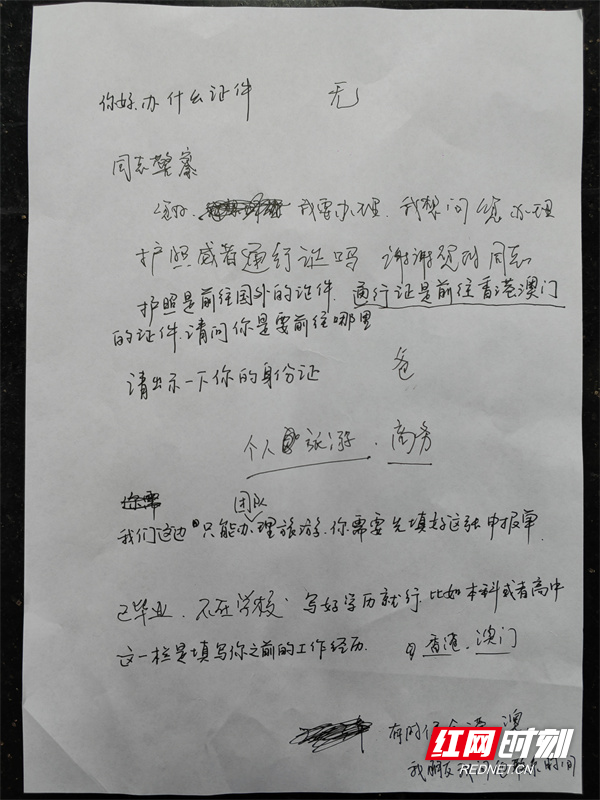 你好.办什么证件 无
同志警察
您好. 我要办理. 我想问您办理
护照或者通行证吗 谢谢 同志
护照是前往国外的证件. 通行证是前往香港澳门
的证件.请问你是要前往哪里
请出示一下你的身份证
个人 旅游. 商务
团队
我们这边只能办理旅游.你需要先填好这张申报单.
已毕业. 不在学校. 写好学历就行.比如本科或者高中
这一栏是填写你之前的工作经历. 香港.澳门
有时 澳
我朋友 时间
红网时刻
REDNET.CN